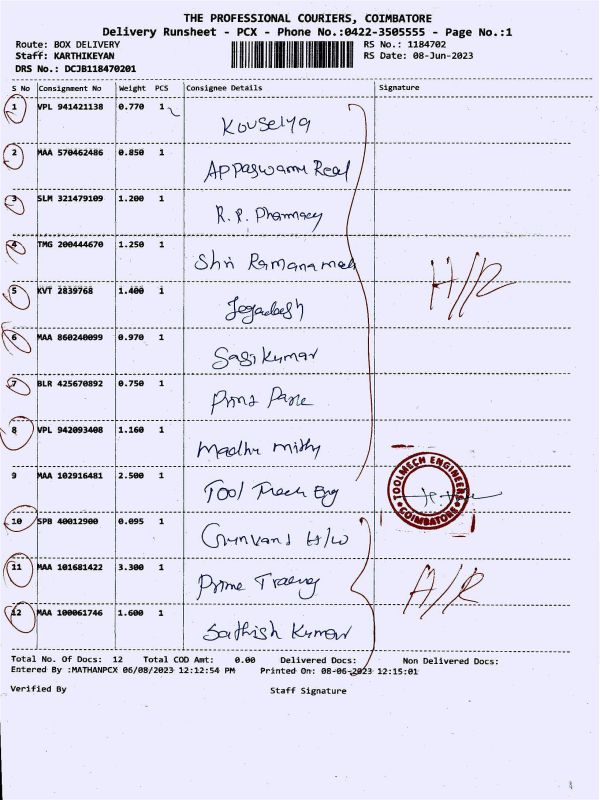 THE PROFESSIONAL COURIERS, COIMBATORE
Delivery Runsheet - PCX - Phone No.:0422-3505555 - Page No.:1
Route: BOX DELIVERY RS No.: 1184702
Staff: KARTHIKEYAN RS Date: 08-Jun-2023
DRS No.: DCJB118470201
S No Consignment No Weight PCS Consignee Details Signature
1 VPL 941421138 0.770 1 Kouselya
2 MAA 570462486 0.850 1 Appaswamy Real
3 SLM 321479109 1.200 1 R.P. Pharmacy
4 TMG 200444670 1.250 1 Shri Ramana
H/R
5 KVT 2839768 1.400 1 Jegadesh
6 MAA 860240099 0.970 1 Sasikumar
7 BLR 425670892 0.750 1
8 VPL 942093408 1.160 1 Madhu
9 MAA 102916481 2.500 1 Tool Mech Eng
TOOLMECH ENGINEERS COIMBATORE
10 SPB 40012900 0.095 1 Gunvant H/W
11 MAA 101681422 3.300 1 Prime Trading
A/R
12 MAA 100061746 1.600 1 Sathish Kumar
Total No. Of Docs: 12 Total COD Amt: 0.00 Delivered Docs: Non Delivered Docs:
Entered By :MATHANPCX 06/08/2023 12:12:54 PM Printed On: 08-06-2023 12:15:01
Verified By Staff Signature